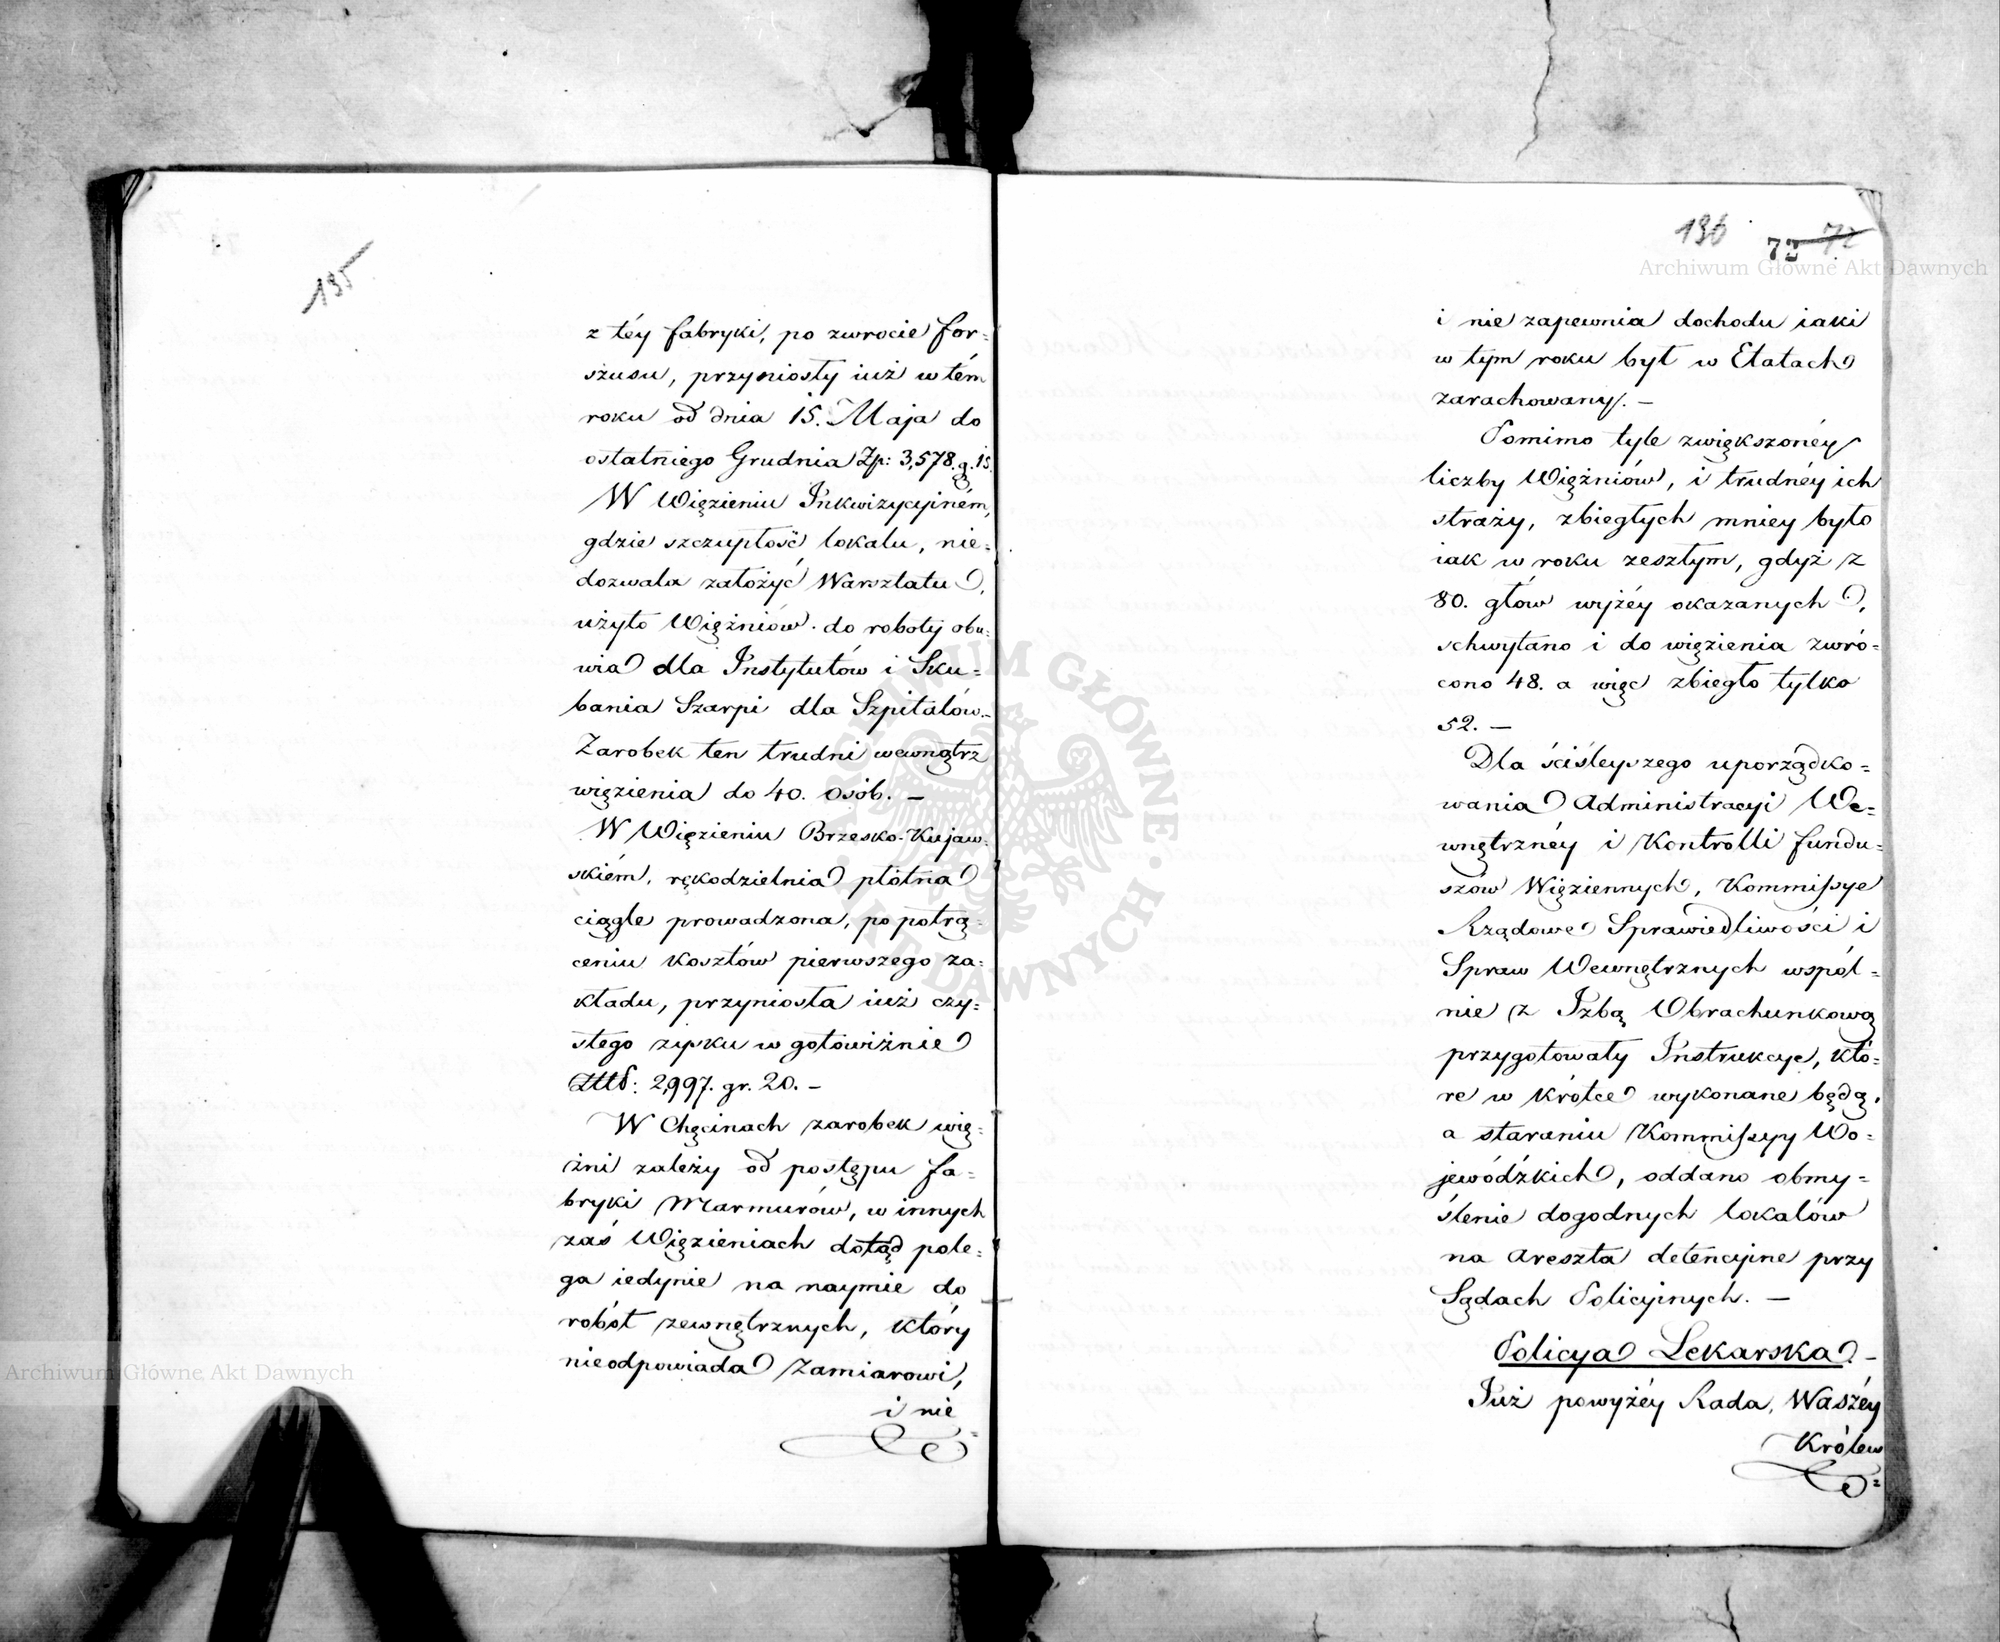 195
z téy fabryki, po zwrocie for=
szusu, przyniosły iuż w tém
roku od dnia 15. Maja do
ostatniego Grudnia Zp: 3,578. g. 15.
W Więzieniu Inkwizycyiném,
gdzie szczupłość lokalu, nie=
dozwala założyć Warsztatu,
użyto Więźniów do roboty obu=
wia dla Instytutów i Sku=
bania Szarpi dla Szpitalów.–
Zarobek ten trudni wewnątrz
więzienia do 40. osób. –
W Więzieniu Brzesko-Kujaw=
skiém, rękodzielnia płótna
ciągle prowadzona, po potrą=
ceniu kosztów pierwszego za=
kładu, przyniosła iuż czy=
stego zysku w gotowiźnie
2,997. gr. 20. –
W Chęcinach zarobek wię=
źni zależy od postępu fa=
bryki Marmurów, w innych
zaś Więzieniach dotąd pole=
ga iedynie na naymie do
robót zewnętrznych, który
nieodpowiada zamiarowi,
i nie
196 72 72
i nie zapewnia dochodu iaki
w tym roku był w Etatach
zarachowany. –
Pomimo tyle zwiększonéy
liczby Więźniów, i trudnéy ich
straży, zbiegłych mniey było
iak w roku zeszłym, gdyż z
80. głów wyżéy okazanych,
schwytano i do więzienia zwró=
cono 48. a więc zbiegło tylko
52. –
Dla ściśleyszego uporządko=
wania Administracyi We=
wnętrznéy i Kontrolli fundu=
szów Więziennych, Kommissye
Rządowe Sprawiedliwości i
Spraw Wewnętrznych wspól=
nie z Izbą Obrachunkową
przygotowały Instrukcye, któ=
re w krótce wykonane będą,
a staraniu Kommissyy Wo=
jewódzkich, oddano obmy=
ślenie dogodnych lokalów
na Areszta detencyine przy
Sądach Policyinych. –
Policya Lekarska. –
Już powyżéy Rada, Waszéy
Królew=
Archiwum Główne Akt Dawnych
Archiwum Główne Akt Dawnych
ARCHIWUM GŁÓWNE AKT DAWNYCH